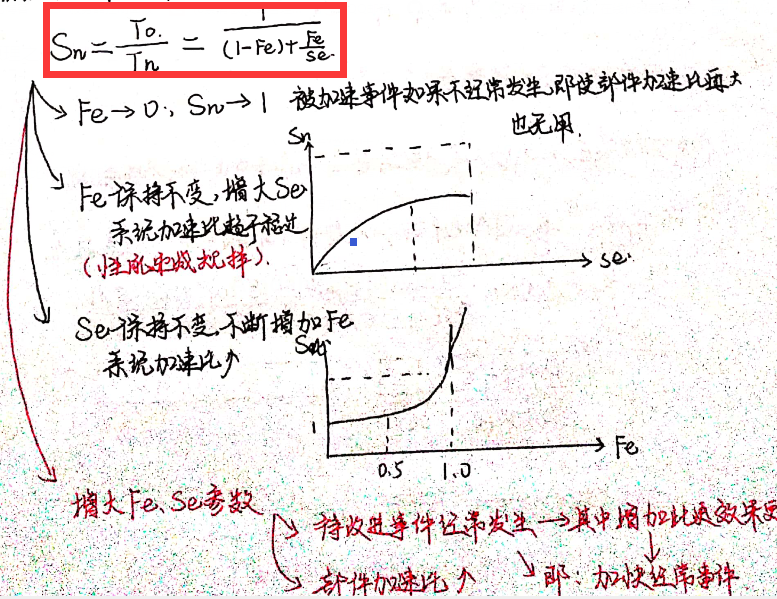 Sn = To/Tn = 1/((1-Fe)+Fe/Se)
Fe→0, Sn→1 被加速事件如果不经常发生,即使部件加速比再大
也无用.
Sn
Fe保持不变,增大Se
系统加速比趋于稳定
(性能递减规律).
Se
Se保持不变,不断增加Fe
系统加速比↑
1
0.5 1.0
Fe
增大Fe、Se参数
待改进事件经常发生→其中增加比
部件加速比↑
即:加快经常事件